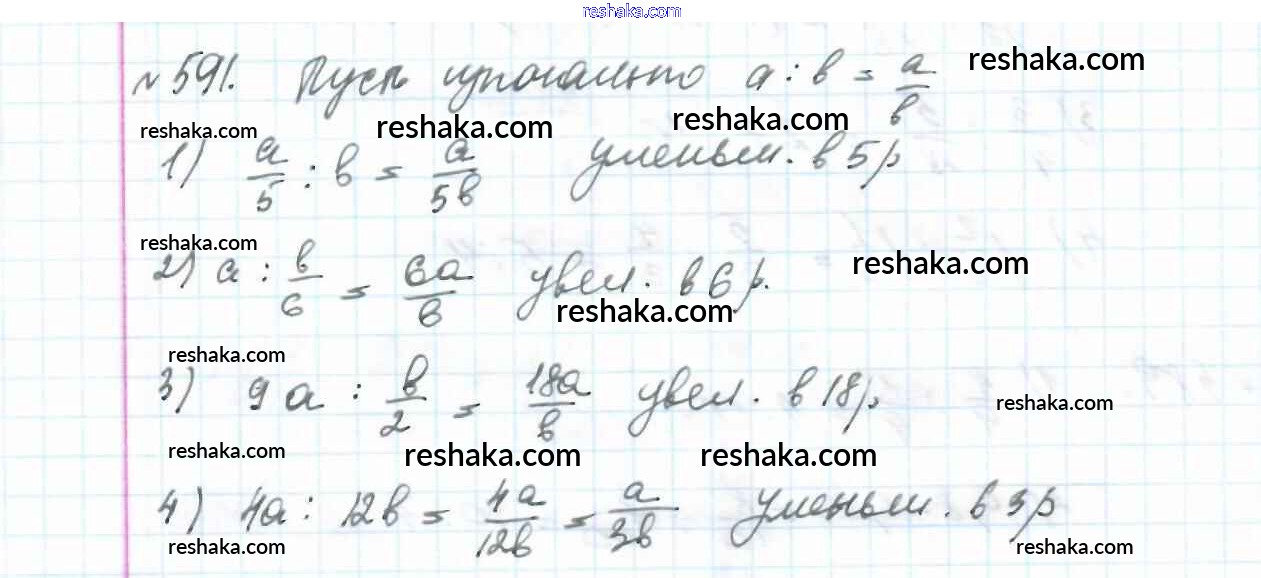 reshaka.com
№ 591. Пусть изначально a : b = a/b reshaka.com
reshaka.com reshaka.com reshaka.com
1) a/5 : b = a/5b уменьш. в 5 р
reshaka.com
2) a : b/6 = 6a/b увел. в 6 р. reshaka.com
reshaka.com
reshaka.com
3) 9a : b/2 = 18a/b увел. в 18 р reshaka.com
reshaka.com reshaka.com reshaka.com
4) 4a : 12b = 4a/12b = a/3b уменьш. в 3 р
reshaka.com reshaka.com